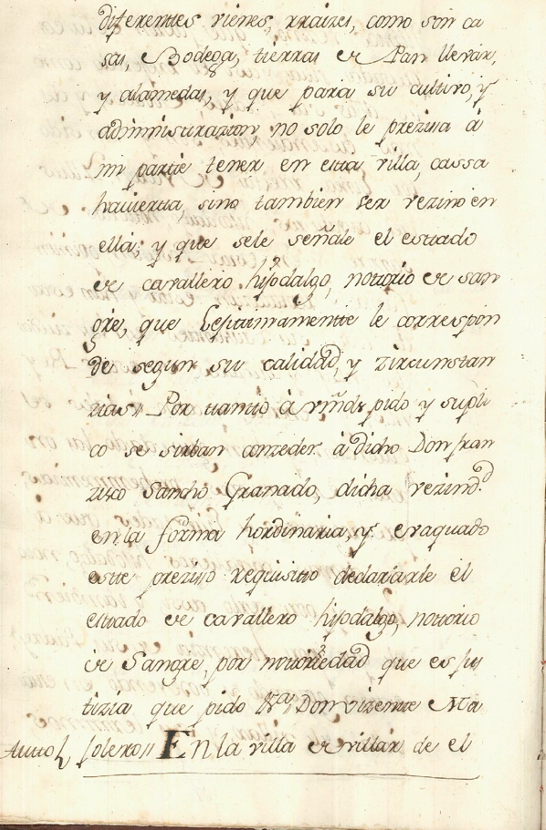 diferentes vienes, rraizes, como son ca
sas, Bodega, tierras de Pan llevar,
y alamedas, y que para su cultivo, y
administrazion no solo le prezisa á
mi parte tener en esta villa, cassa
havierta, sino tambien ser vezino en
ella; y que sele señale el estado
de cavallero hijodalgo, notorio de san
gre, que Lejitimamente le correspon
de segun su calidad, y zircunstan
zias Por tanto á vmds pido y supli
co se sirban conzeder á dicho Don fran
zisco Sancho Granado, dicha vezind.d
en la forma hordinaria, y evaquado
este preziso requisito declararle el
estado de cavallero hijodalgo, notorio
de Sangre, por notoriedad que es jus
tizia que pido Don Vizente Ma
Autto solero En la villa de villar de el